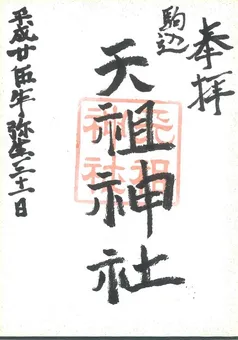 奉拝
駒込
天祖神社
天祖神社
平成廿伍年弥生三十一日